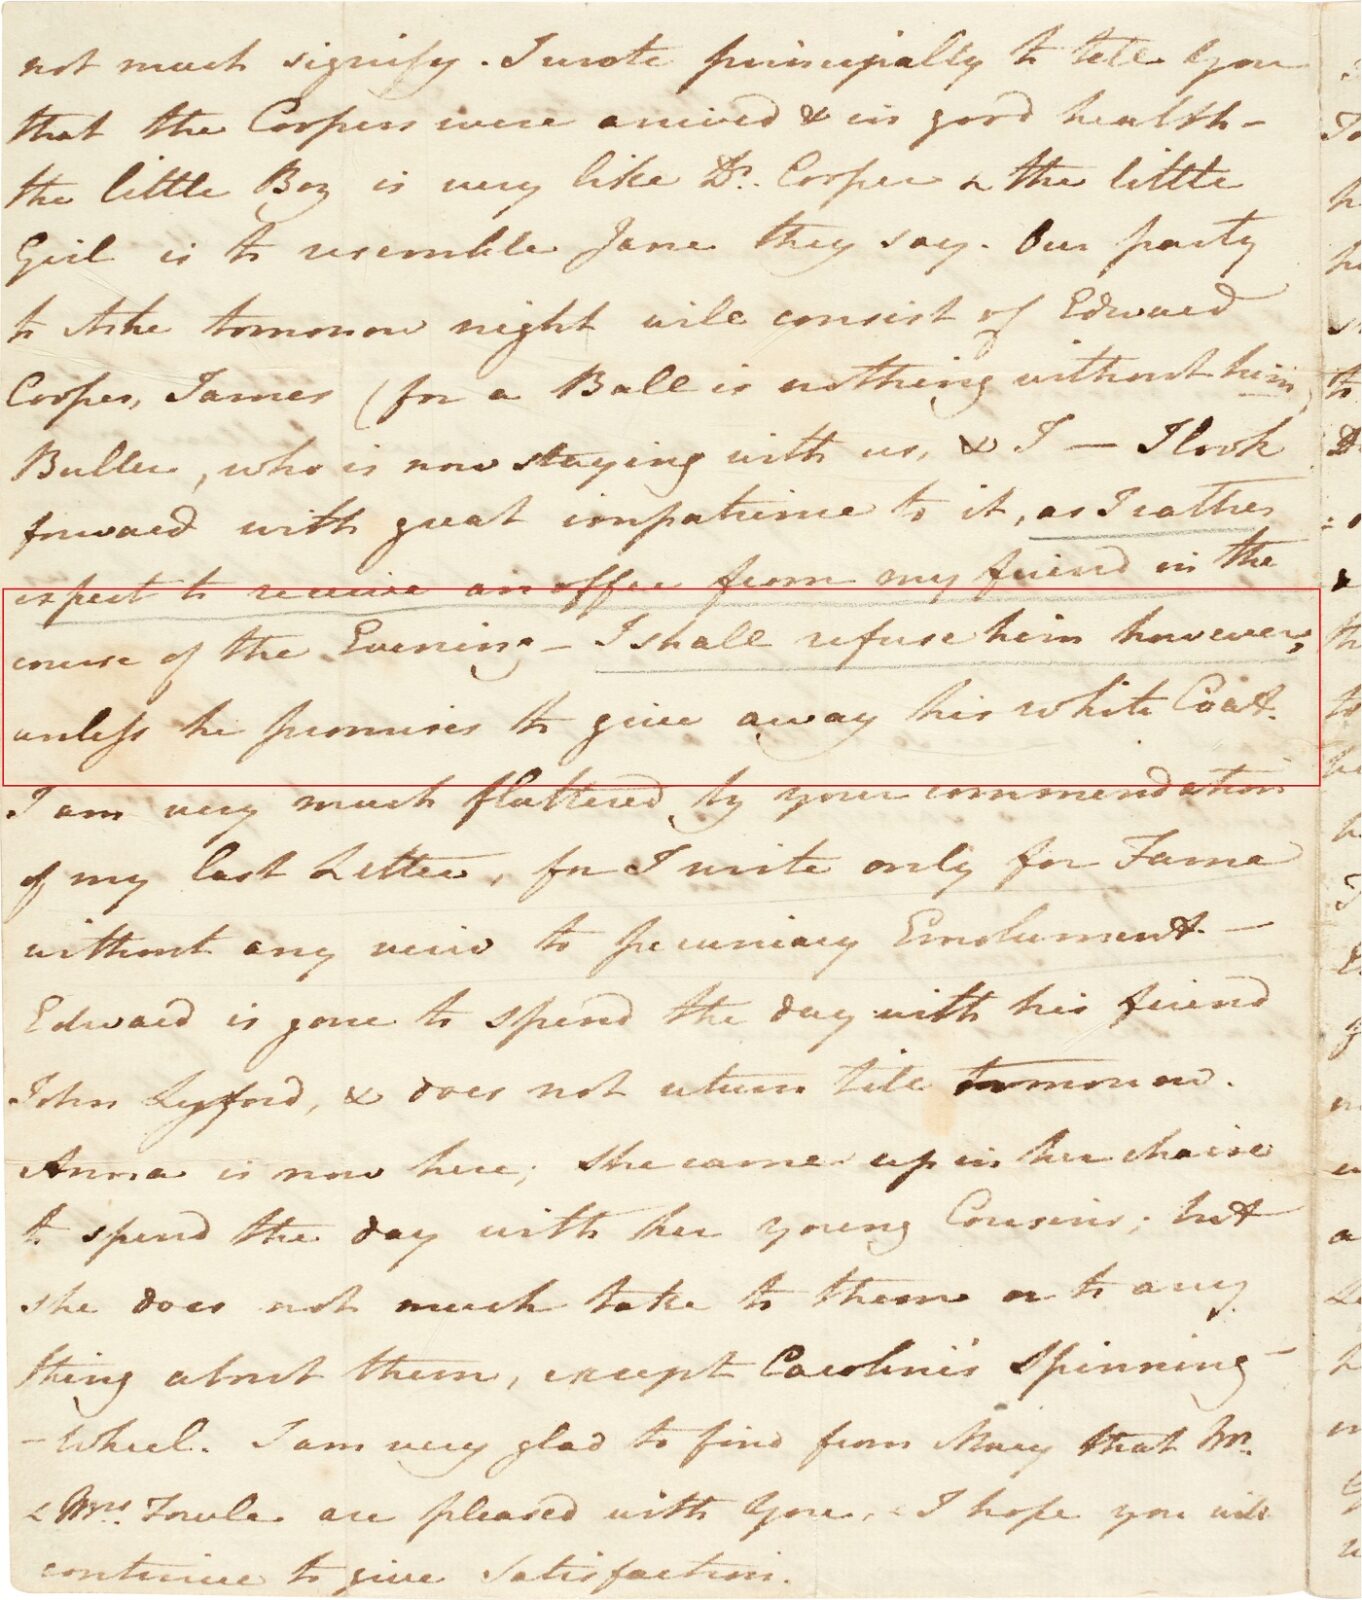 not much signify. I wrote principally to tell you
that the Coopers were arrived & in good health—
the little Boy is very like Dr. Cooper & the little
Girl is to resemble Jane they say. Our party
to Ashe tomorrow night will consist of Edward
Cooper, James (for a Ball is nothing without him)
Buller, who is now staying with us, & I — I look
forward with great impatience to it, as I rather
expect to receive an offer from my friend in the
course of the Evening — I shall refuse him however,
unless he promises to give away his white Coat.
I am very much flattered by your commendation
of my last Letter, for I write only for Fame
without any view to pecuniary Emolument. —
Edward is gone to spend the day with his friend
John Lyford, & does not return till tomorrow.
Anna is now here; she came up in her chaise
to spend the day with her young Cousins; but
she does not much take to them or to any
thing about them, except Caroline's Spinning
-Wheel. I am very glad to find from Mary that Mr.
& Mrs. Fowle are pleased with you, & I hope you will
continue to give satisfaction.